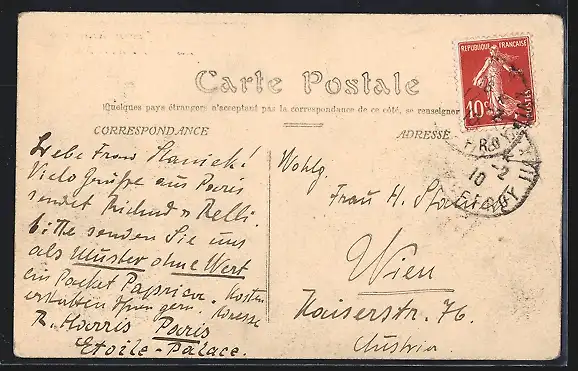 Carte Postale
Quelques pays étrangers n'acceptant pas la correspondance de ce côté, se renseigner
CORRESPONDANCE
ADRESSE
REPUBLIQUE FRANÇAISE
10c
Liebe Frau Stanick!
Viele Grüße aus Paris
sendet Richard & Relli.
bitte senden Sie uns
als Muster ohne Wert
ein Packet Paprica. Kosten
erhalten Ihnen gern. Adresse
R. Harris Paris
Etoile-Palace.
Wohlg.
Frau H.
Wien
Kaiserstr. 76.
Austria.